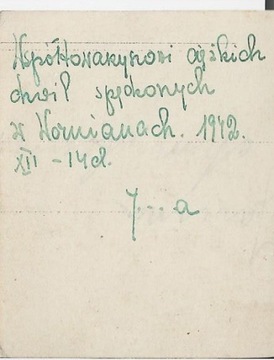 Współtowarzyszowi ciężkich
chwil spędzonych
w Wornianach. 1942.
XII - 14d.
J...a